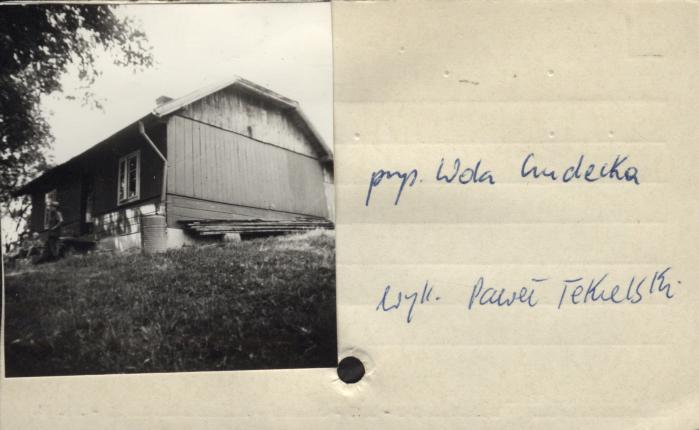 prip. Wola Cudecka
wyk. Paweł Tekielski